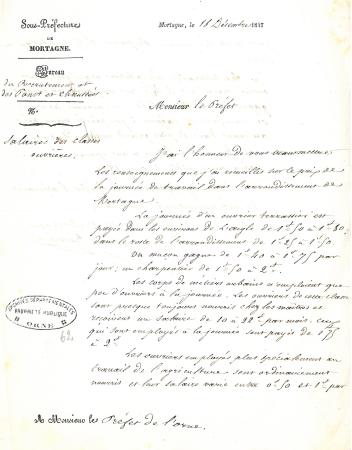 Sous-Préfecture
DE
MORTAGNE.
Bureau
du Recrutement et
des Ponts et Chaussées
N.
Salaires des classes
ouvrières.
Mortagne, le 18 Décembre 1847
Monsieur le Préfet
J'ai l'honneur de vous transmettre
les renseignements que j'ai recueillis sur le prix de
la journée de travail dans l'arrondissement de
Mortagne
La journée d'un ouvrier terrassier est
payée dans les environs de Laigle de 1f 50 à 1f 80
dans le reste de l'arrondissement de 1f 25 à 1f 50.
Un maçon gagne de 1f 40 à 1f 75 par
jour; un charpentier de 1f 50 à 2f.
Les corps de métiers urbains n'emploient que
peu d'ouvriers à la journée. Les ouvriers de cette classe
sont presque toujours nourris chez les maîtres et
reçoivent un salaire de 10 à 22f par mois. Ceux
qui sont employés à la journée sont payés de 1f 75
à 2f.
Les ouvriers employés plus spécialement au
travail de l'agriculture sont ordinairement
nourris et leur salaire varie entre 0f 50 et 1f par
ARCHIVES DÉPARTEMENTALES
PROPRIÉTÉ PUBLIQUE
ORNE
62
A Monsieur le Préfet de l'orne.